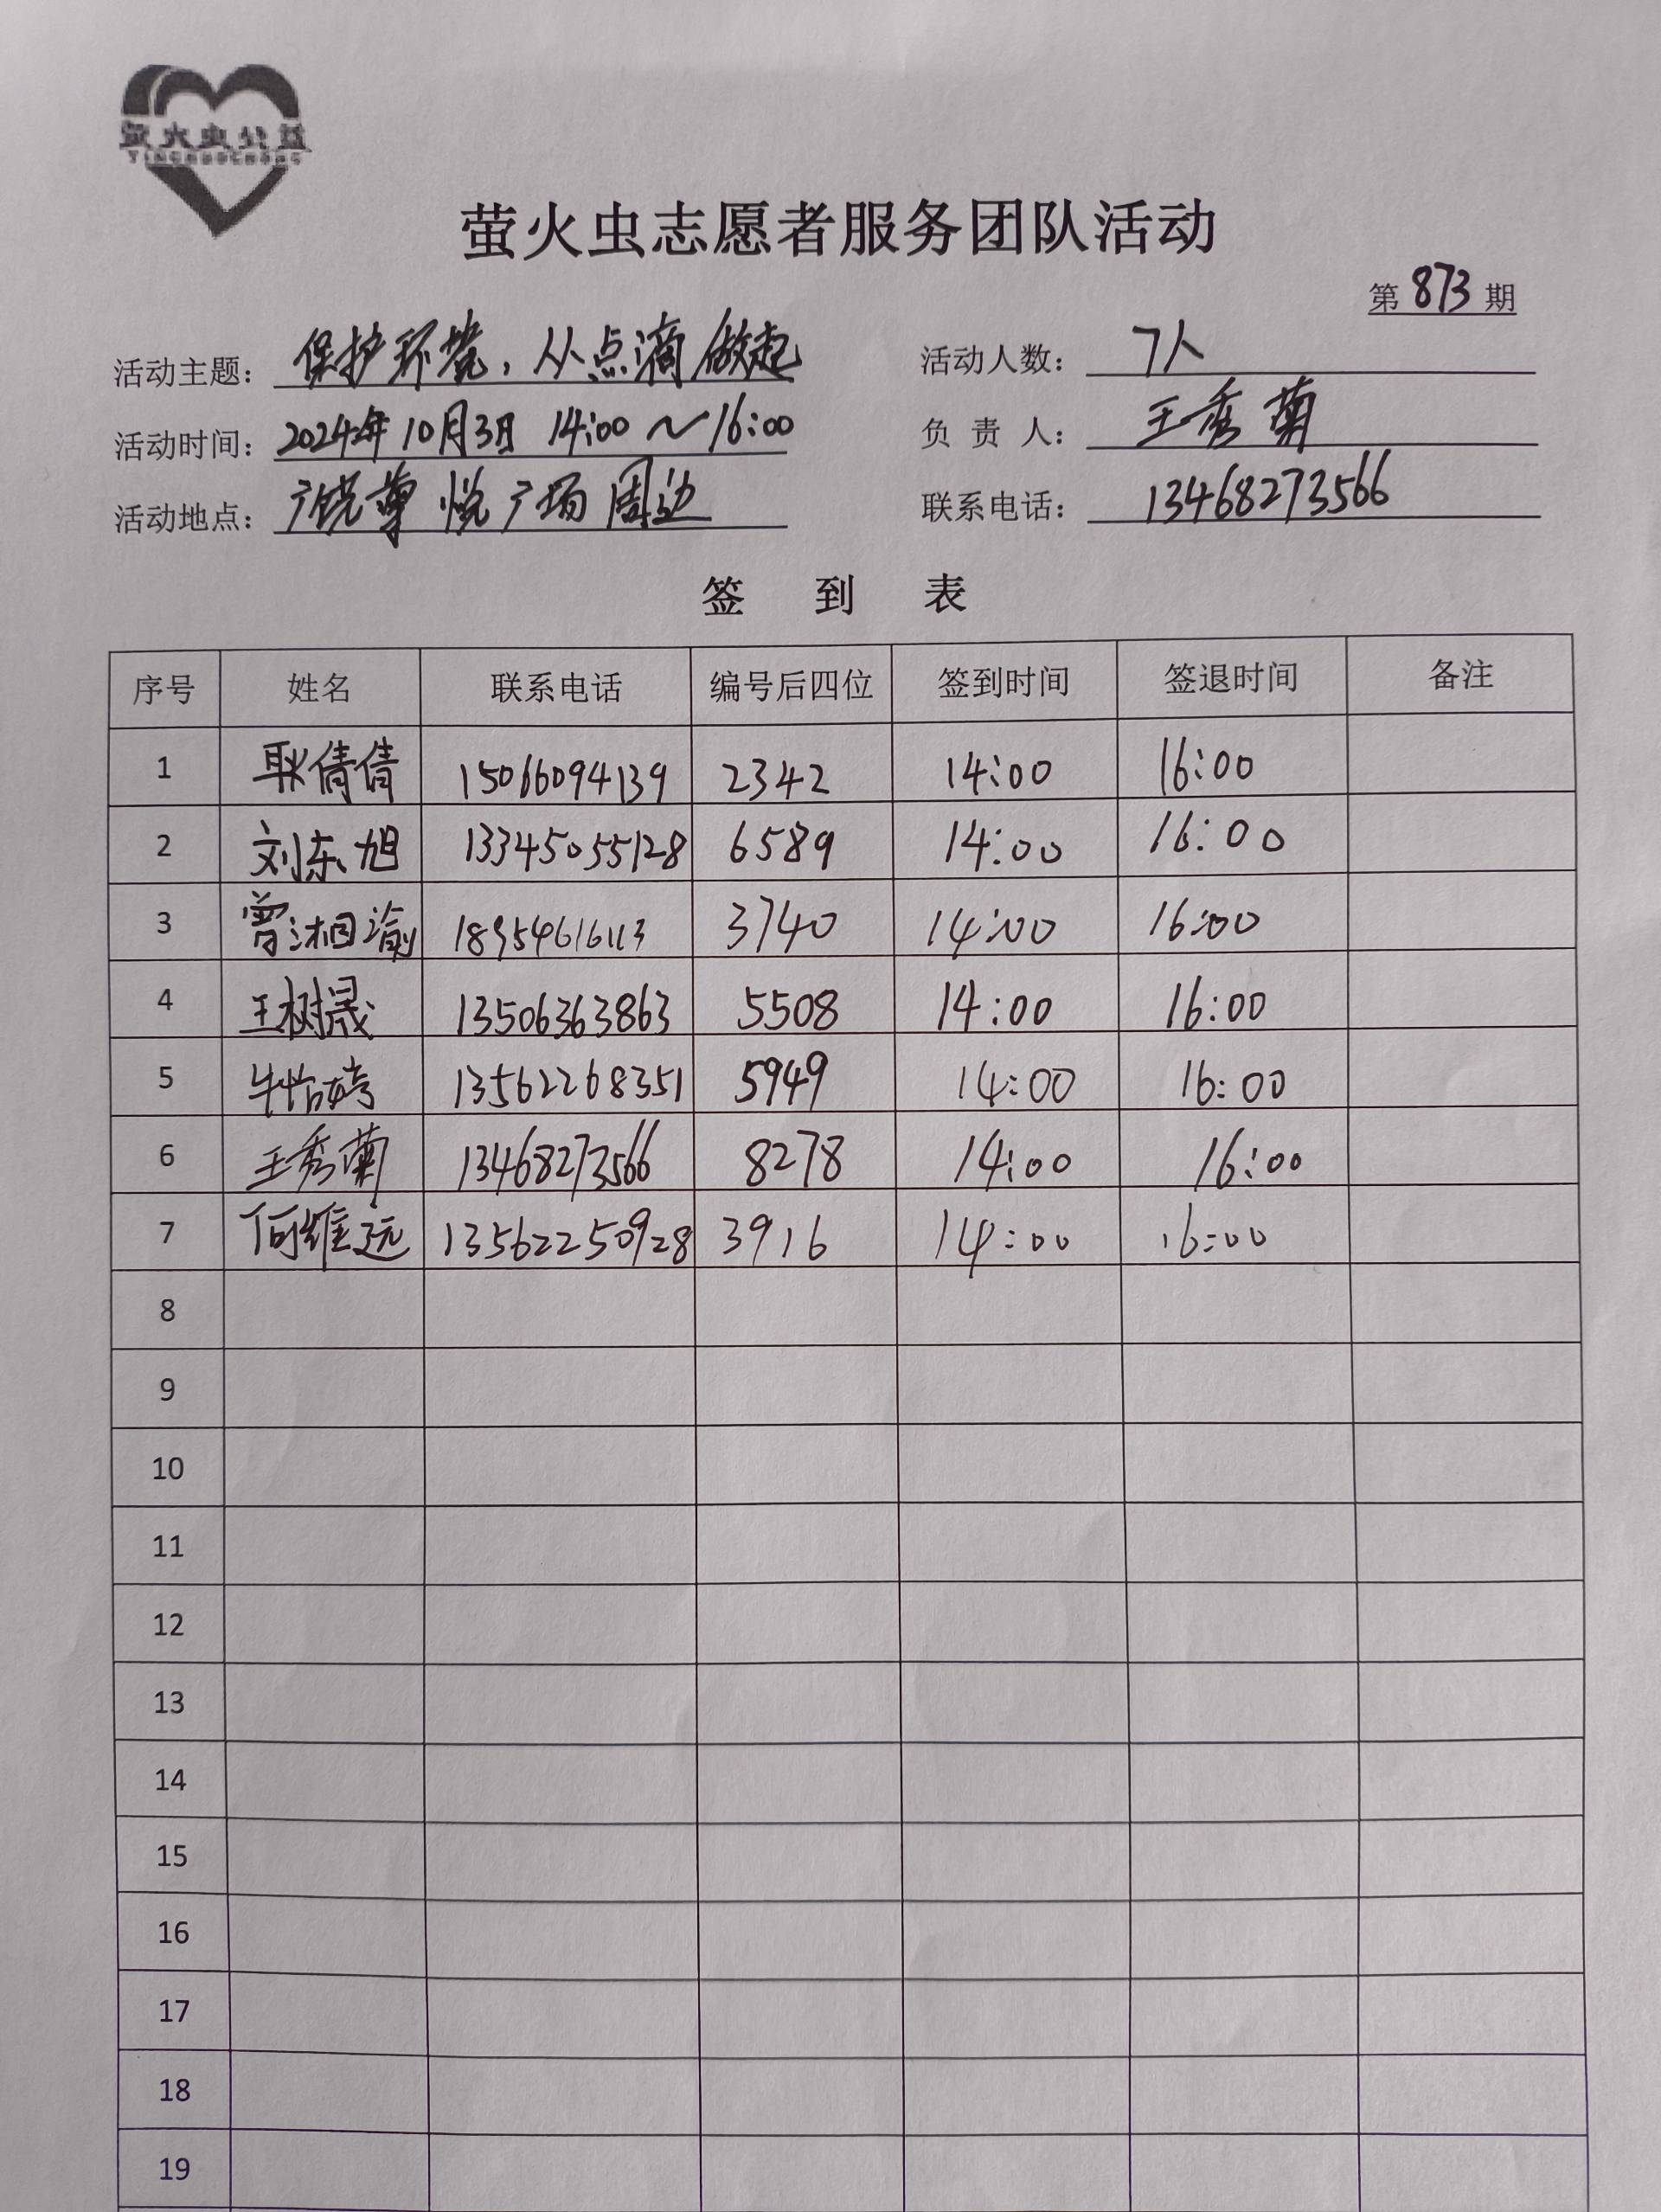 萤火虫公益
YINGHUOCHONG
萤火虫志愿者服务团队活动
第 873 期
活动主题: 保护环境，从点滴做起 活动人数: 7人
活动时间: 2024年10月3日 14:00～16:00 负责人: 王秀菊
活动地点: 广饶尊悦广场周边 联系电话: 13468273566
签到表
序号 姓名 联系电话 编号后四位 签到时间 签退时间 备注
1 耿倩倩 15066094139 2342 14:00 16:00
2 刘东旭 13345055128 6589 14:00 16:00
3 曾湘渝 18954616113 3740 14:00 16:00
4 王树晟 13506363863 5508 14:00 16:00
5 13562268351 5949 14:00 16:00
6 王秀菊 13468273566 8278 14:00 16:00
7 何维远 13562250928 3916 14:00 16:00
8
9
10
11
12
13
14
15
16
17
18
19